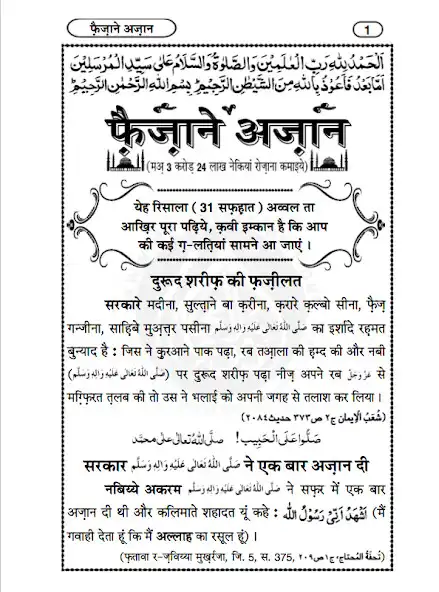 फ़ैज़ाने अज़ान
1
اَلْحَمْدُ لِلّٰهِ رَبِّ الْعٰلَمِيْنَ وَالصَّلٰوةُ وَالسَّلَامُ عَلٰى سَيِّدِ الْمُرْسَلِيْنَ
اَمَّا بَعْدُ فَاَعُوْذُ بِاللّٰهِ مِنَ الشَّيْطٰنِ الرَّجِيْمِ بِسْمِ اللّٰهِ الرَّحْمٰنِ الرَّحِيْمِ
फ़ैज़ाने अज़ान
(मअ़ 3 करोड़ 24 लाख नेकियां रोज़ाना कमाइये)
येह रिसाला ( 31 सफ़हात ) अव्वल ता
आख़िर पूरा पढ़िये, क़वी इम्कान है कि आप
की कई ग़-लतियां सामने आ जाएं ।
दुरूद शरीफ़ की फ़ज़ीलत
सरकारे मदीना, सुल्ताने बा क़रीना, क़रारे क़ल्बो सीना, फ़ैज़
गन्जीना, साहिबे मुअ़त्तर पसीना صَلَّى اللهُ تَعَالٰى عَلَيْهِ وَاٰلِهٖ وَسَلَّم का इर्शादे रहमत
बुन्याद है : जिस ने कुरआने पाक पढ़ा, रब तआ़ला की हम्द की और नबी
(صَلَّى اللهُ تَعَالٰى عَلَيْهِ وَاٰلِهٖ وَسَلَّم) पर दुरूद शरीफ़ पढ़ा नीज़ अपने रब عَزَّوَجَلَّ से
मग़्फ़िरत त़लब की तो उस ने भलाई को अपनी जगह से तलाश कर लिया ।
(شُعَبُ الْاِيمان ج٢ ص٣٧٣ حديث٢٠٨٤)
صَلُّوْا عَلَى الْحَبِيْب! صَلَّى اللهُ تَعَالٰى عَلٰى مُحَمَّد
सरकार صَلَّى اللهُ تَعَالٰى عَلَيْهِ وَاٰلِهٖ وَسَلَّم ने एक बार अज़ान दी
नबिय्ये अकरम صَلَّى اللهُ تَعَالٰى عَلَيْهِ وَاٰلِهٖ وَسَلَّم ने सफ़र में एक बार
अज़ान दी थी और कलिमाते शहादत यूं कहे : اَشْهَدُ اَنِّىْ رَسُوْلُ اللّٰه (मैं
गवाही देता हूं कि मैं अल्लाह का रसूल हूं) ।
(फ़तावा र-ज़विय्या मुख़र्रजा, जि. 5, स. 375, تُحفَةُ المُحتاج، ج١ ص٢٠٩)